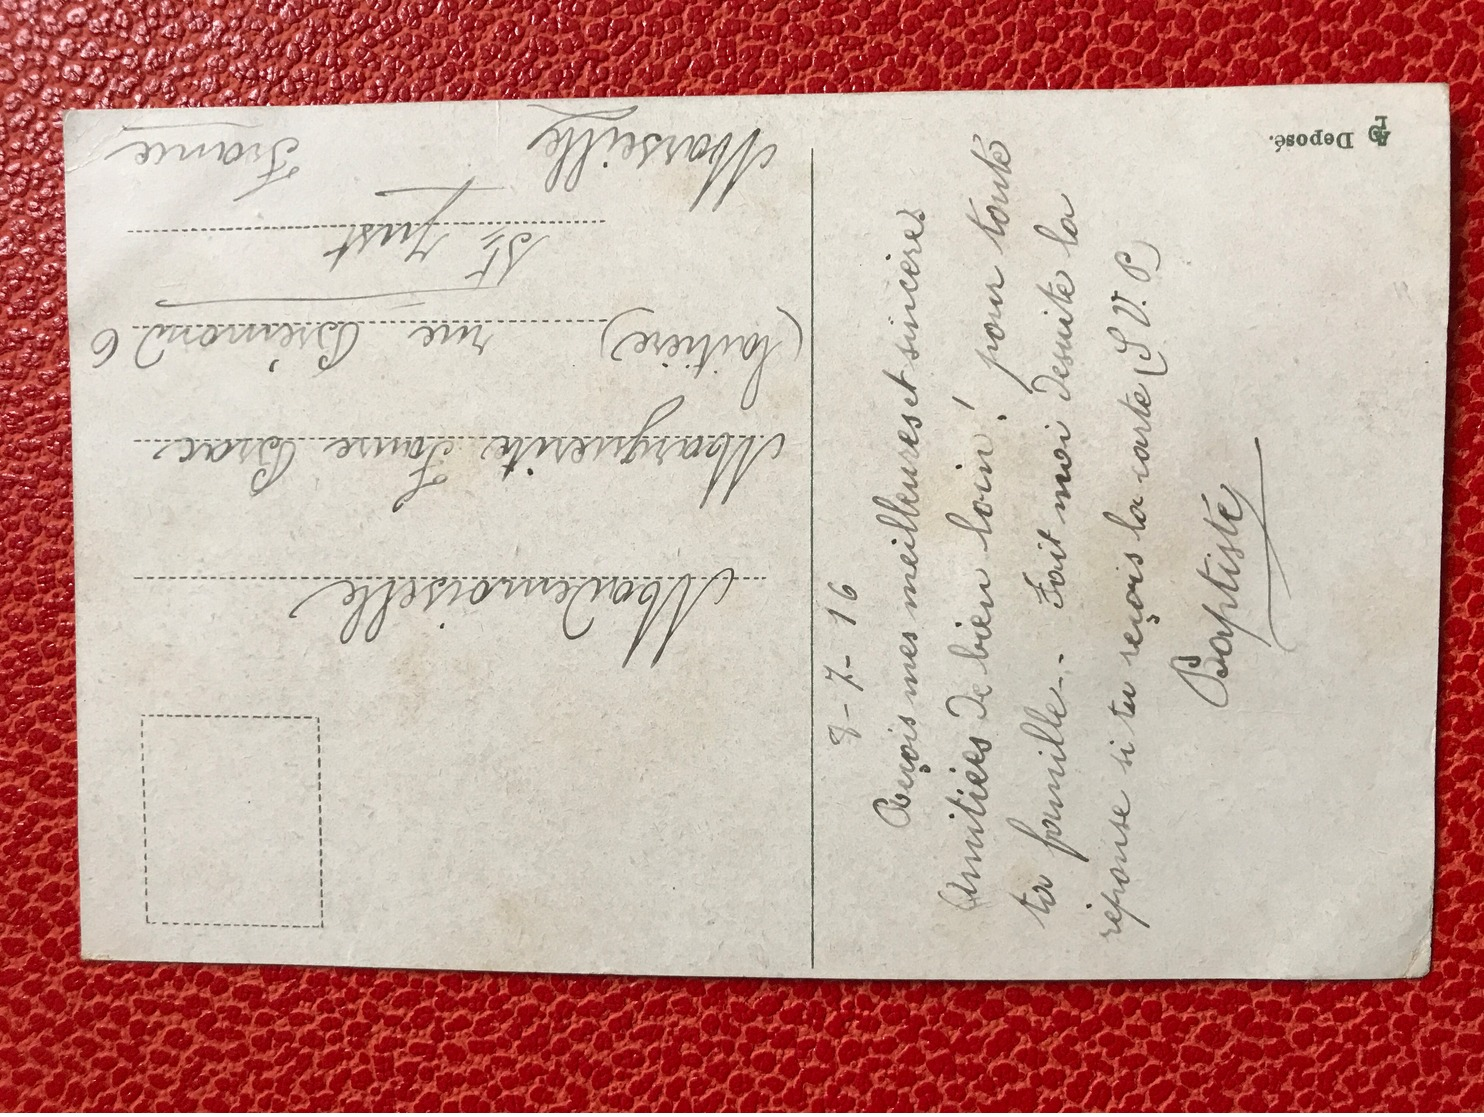 8-7-16
Reçois mes meilleures et sincères
Amitiées de bien loin! pour toute
ta famille-. Fait moi desuite la
réponse si tu reçois la carte (S.V.P)
Baptiste
Mademoiselle
Marguerite Fause Brac
(laitière) rue Brémond 6
St Just
Marseille France
Deposé.